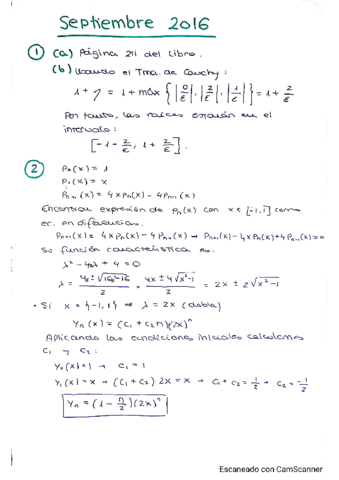 Septiembre 2016
① (a) Página 211 del libro.
(b) Usando el Tma. de Cauchy:
1 + η = 1 + máx { |0/ε|, |2/ε|, |1/ε| } = 1 + 2/ε
Por tanto, las raíces estarán en el
intervalo:
[-1 - 2/ε, 1 + 2/ε].
② P₀(x) = 1
P₁(x) = x
Pₙ₊₁(x) = 4xPₙ(x) - 4Pₙ₋₁(x)
Encontrar expresión de Pₙ(x) con x ∈ [-1,1] como
ec. en diferencias.
Pₙ₊₁(x) = 4xPₙ(x) - 4Pₙ₋₁(x) → Pₙ₊₁(x) - 4xPₙ(x) + 4Pₙ₋₁(x) = 0
Su función característica es:
λ² - 4xλ + 4 = 0
λ = (4x ± √(16x²-16))/2 = (4x ± 4√(x²-1))/2 = 2x ± 2√(x²-1)
• Si x = {-1, 1} → λ = 2x (doble)
Yₙ(x) = (C₁ + C₂n)(2x)ⁿ
Aplicando las condiciones iniciales calculamos
C₁ y C₂:
Y₀(x) = 1 → C₁ = 1
Y₁(x) = x → (C₁ + C₂)·2x = x → C₁ + C₂ = 1/2 → C₂ = -1/2
Yₙ = (1 - n/2)(2x)ⁿ
Escaneado con CamScanner